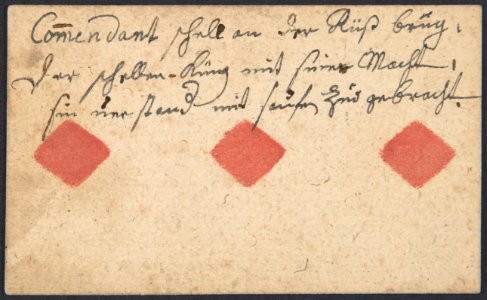 Com̄endant schell an der Rüß brüg,
der schellen-Küng mit siner Macht,
sin verstand mit saufe Zuo gebracht.